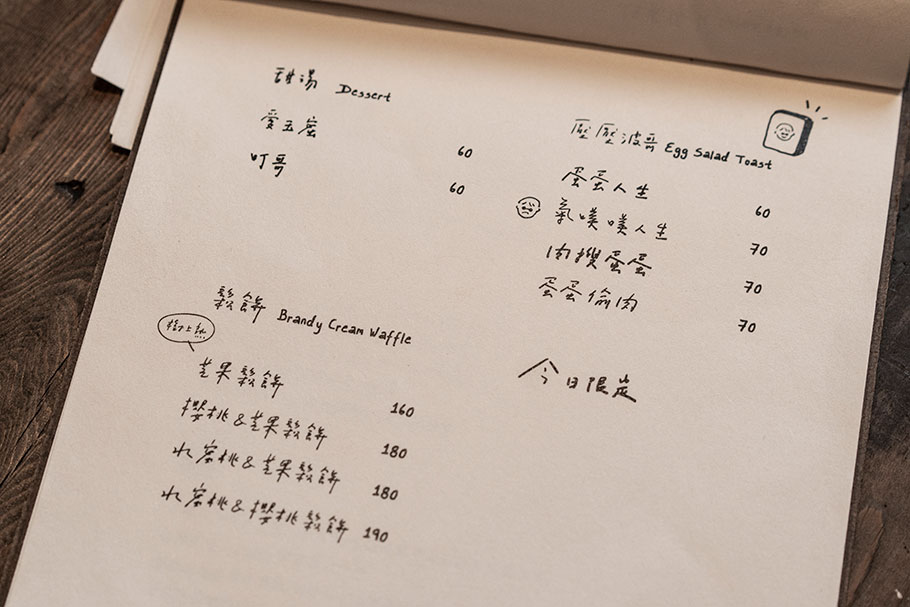 甜湯 Dessert
愛玉蜜 60
叮哥 60
鬆餅 Brandy Cream Waffle
樹上熟
芒果鬆餅 160
櫻桃&芒果鬆餅 180
水蜜桃&芒果鬆餅 180
水蜜桃&櫻桃鬆餅 190
壓壓波哥 Egg Salad Toast
蛋蛋人生 60
氣噗噗人生 70
肉搜蛋蛋 70
蛋蛋偷肉 70
今日限定